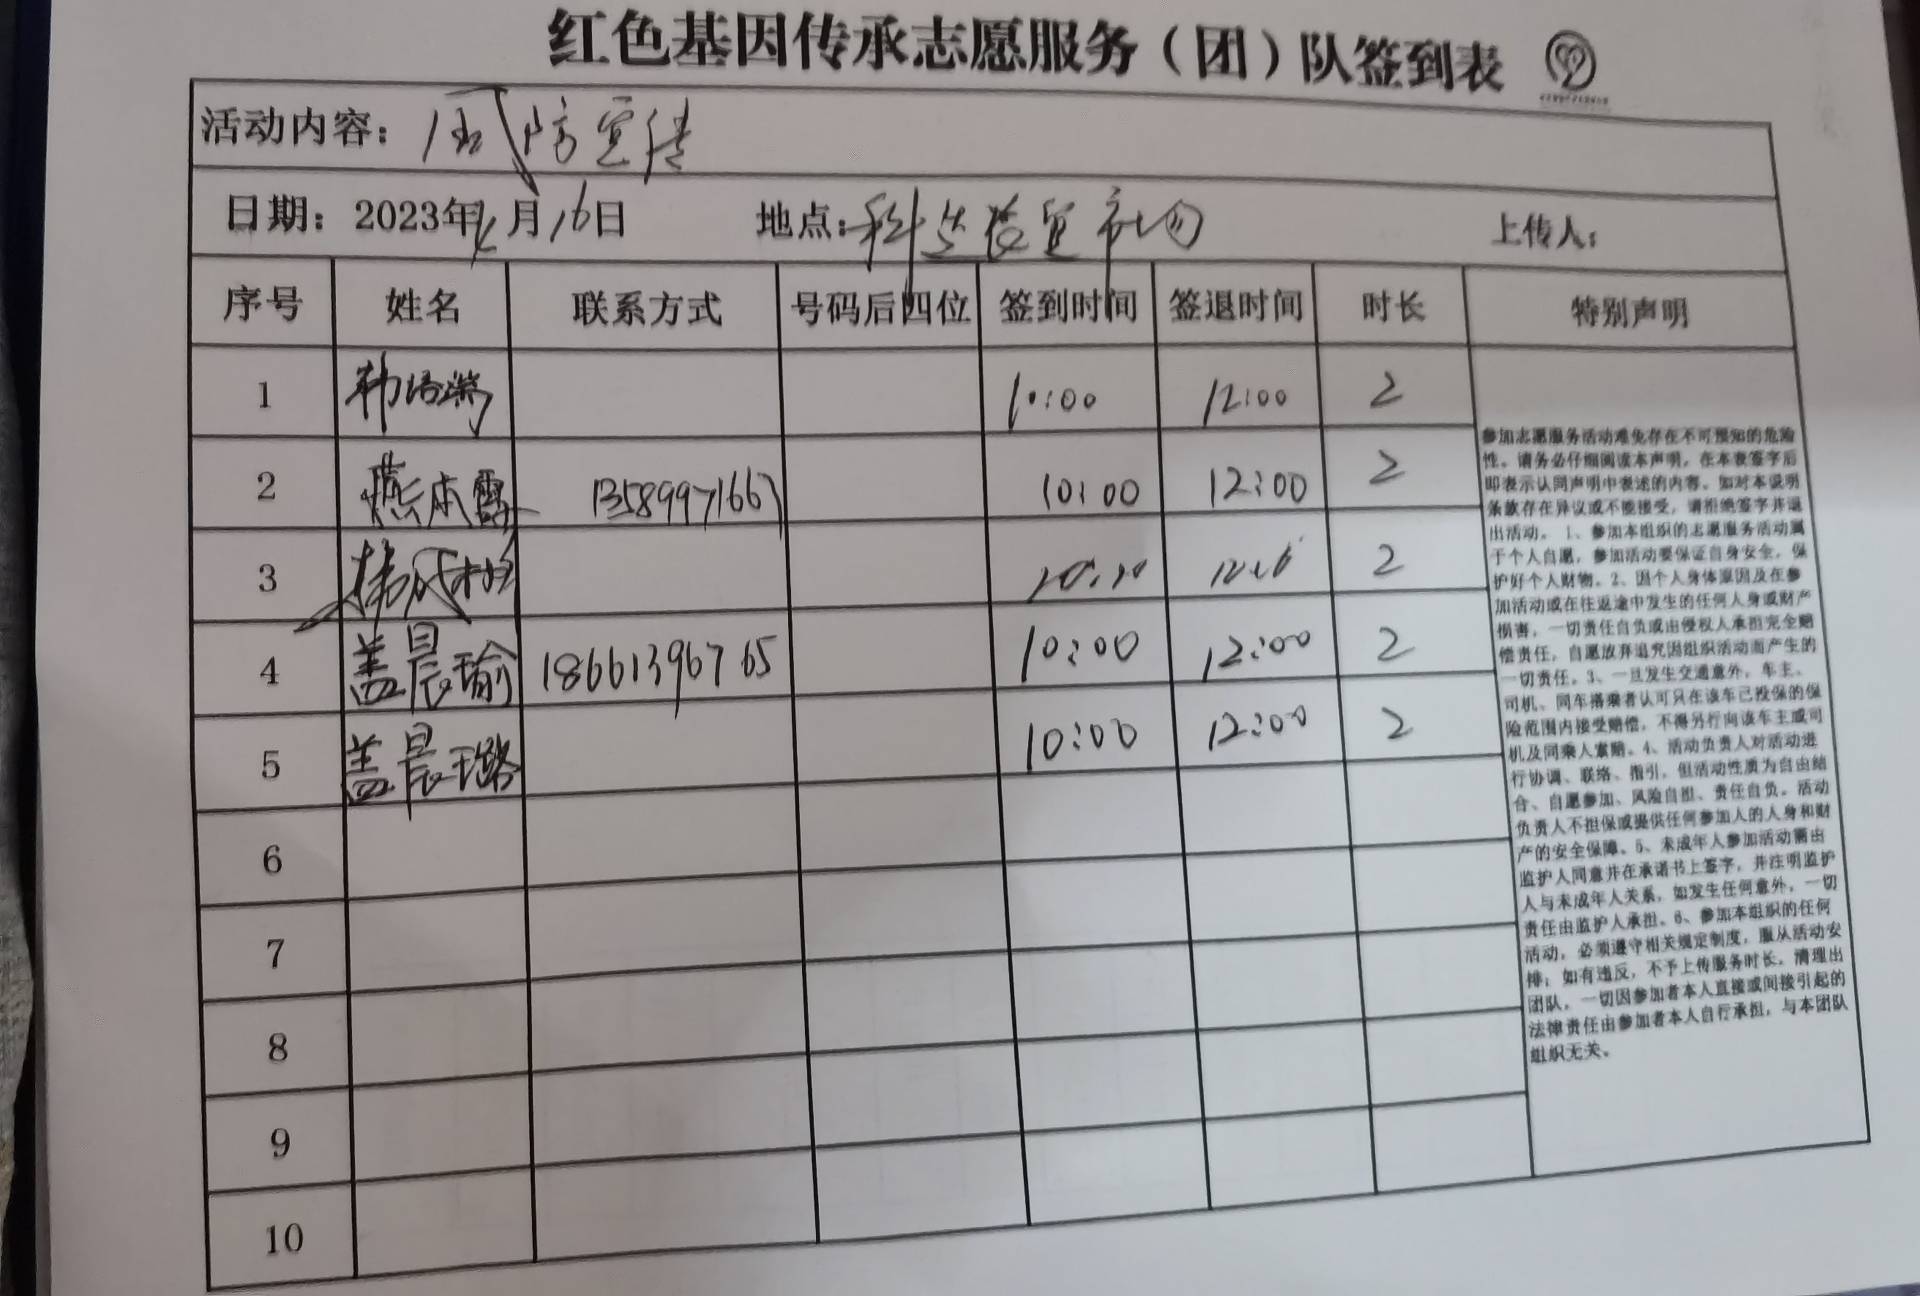 红色基因传承志愿服务（团）队签到表
活动内容：国防宣传
日期：2023年 月16日 地点： 上传人：
序号 姓名 联系方式 号码后四位 签到时间 签退时间 时长 特别声明
1 10:00 12:00 2
2 燕本霞 13589971667 10:00 12:00 2
3 2
4 盖晨瑜 18661396765 10:00 12:00 2
5 盖晨璐 10:00 12:00 2
6
7
8
9
10
参加志愿服务活动难免存在不可预知的危险
性。请务必仔细阅读本声明，在本表签字后
即表示认同声明中表述的内容。如对本说明
条款存在异议或不能接受，请拒绝签字并退
出活动。1、参加本组织的志愿服务活动属
于个人自愿，参加活动要保证自身安全，保
护好个人财物。2、因个人身体原因及在参
加活动或在往返途中发生的任何人身或财产
损害，一切责任自负或由侵权人承担完全赔
偿责任，自愿放弃追究因组织活动而产生的
一切责任。3、一旦发生交通意外，车主、
司机、同车搭乘者认可只在该车已投保的保
险范围内接受赔偿，不得另行向该车主或司
机及同乘人索赔。4、活动负责人对活动进
行协调、联络、指引，但活动性质为自由结
合、自愿参加、风险自担、责任自负。活动
负责人不担保或提供任何参加人的人身和财
产的安全保障。5、未成年人参加活动需由
监护人同意并在承诺书上签字，并注明监护
人与未成年人关系，如发生任何意外，一切
责任由监护人承担。6、参加本组织的任何
活动，必须遵守相关规定制度，服从活动安
排；如有违反，不予上传服务时长，清理出
团队，一切因参加者本人直接或间接引起的
法律责任由参加者本人自行承担，与本团队
组织无关。